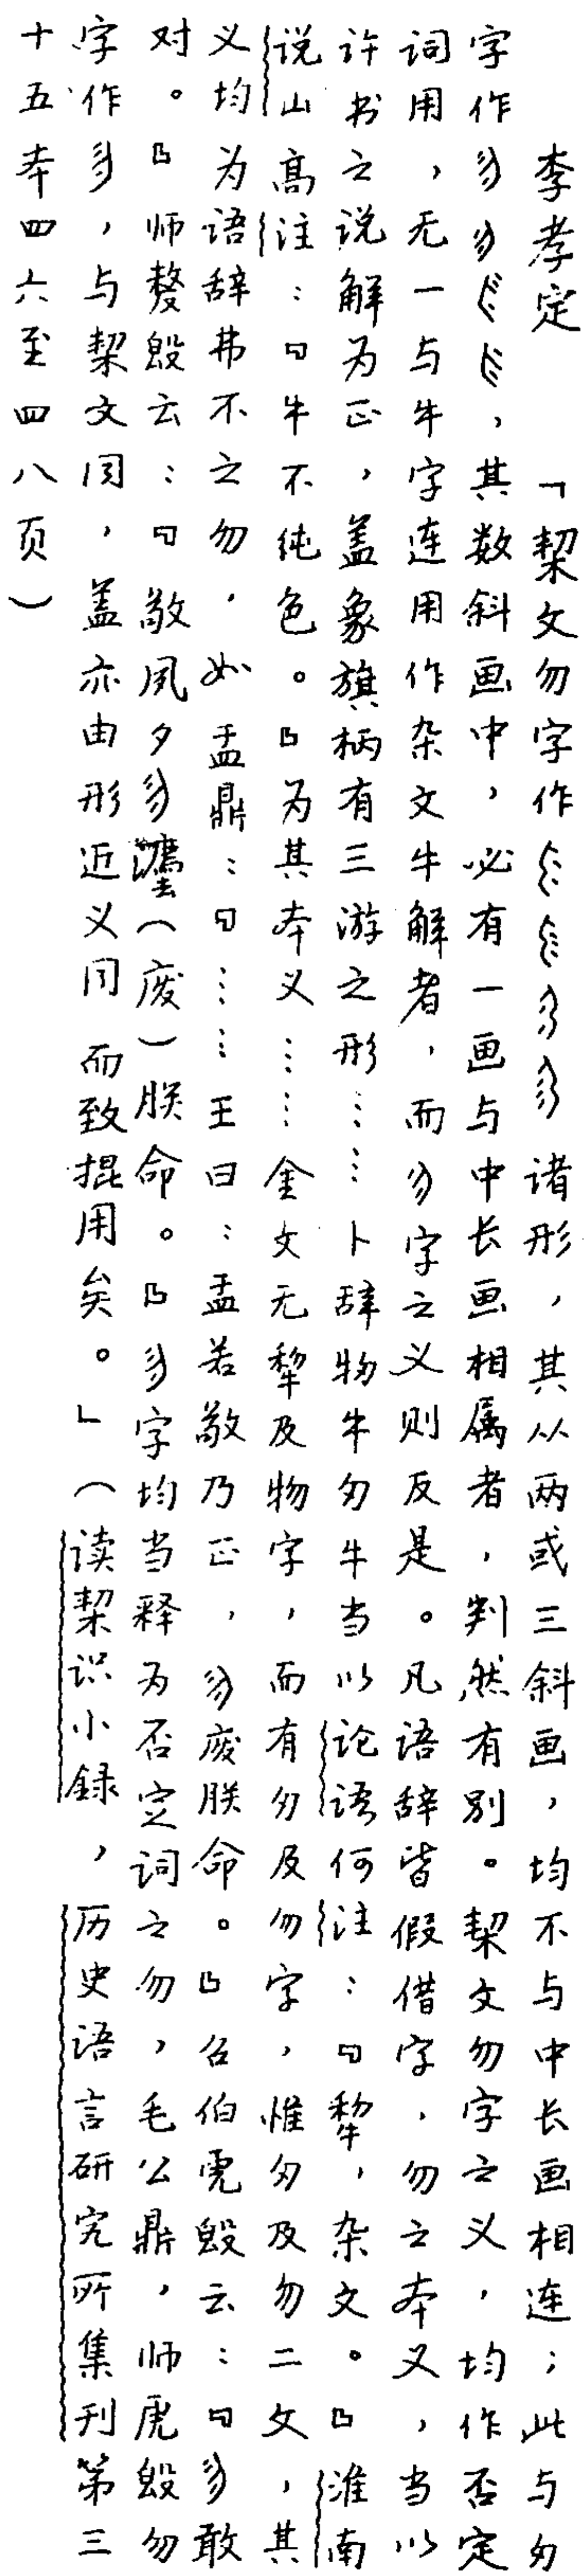 李孝定　「栔文勿字作诸形，其从两或三斜画，均不与中长画相连；此与勿
字作，其数斜画中，必有一画与中长画相属者，判然有别。栔文勿字之义，均作否定
词用，无一与牛字连用作杂文牛解者，而勿字之义则反是。凡语辞皆假借字，勿之本义，当以
许书之说解为正，盖象旗柄有三游之形……卜辞物牛勿牛当以论语何注：『犂，杂文。』淮南
说山高注：『牛不纯色。』为其本义……金文无犂及物字，而有勿及勿字，惟勿及勿二文，其
义均为语辞弗不之勿，如盂鼎：『……王曰：盂若敬乃正，勿废朕命。』召伯虎毁云：『勿敢
对。』师嫠毁云：『敬夙夕勿灋（废）朕命。』勿字均当释为否定词之勿，毛公鼎，师虎毁勿
字作勿，与栔文同，盖亦由形近义同而致掍用矣。」（读栔识小録，历史语言研究所集刊第三
十五本四六至四八页）